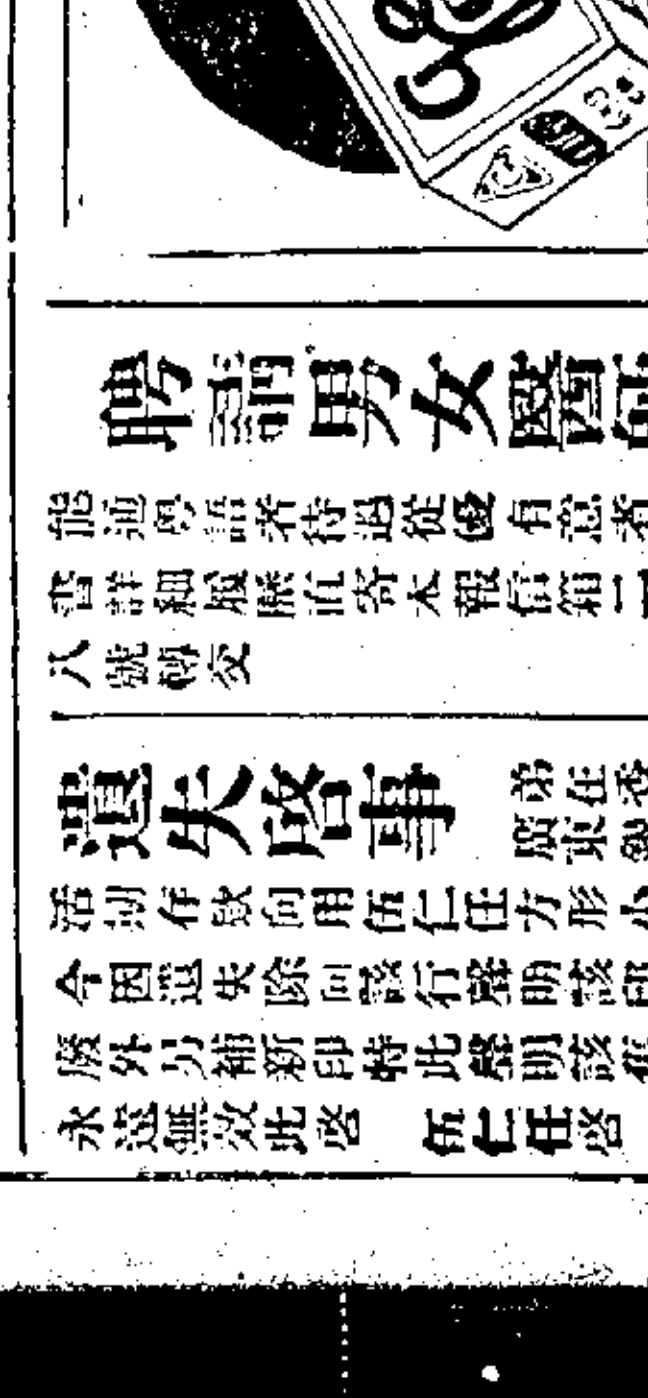 聘請男女醫
能通粵語者待遇從優有意者
書詳細履歷直寄本報信箱二
八號轉交
遺失啓事
弟在香
廣東
活期存款向用伍仁任方形小
今因遺失除向該行聲明該印
廢外另補新印特此聲明該舊
永遠無效此啓　伍仁任啓